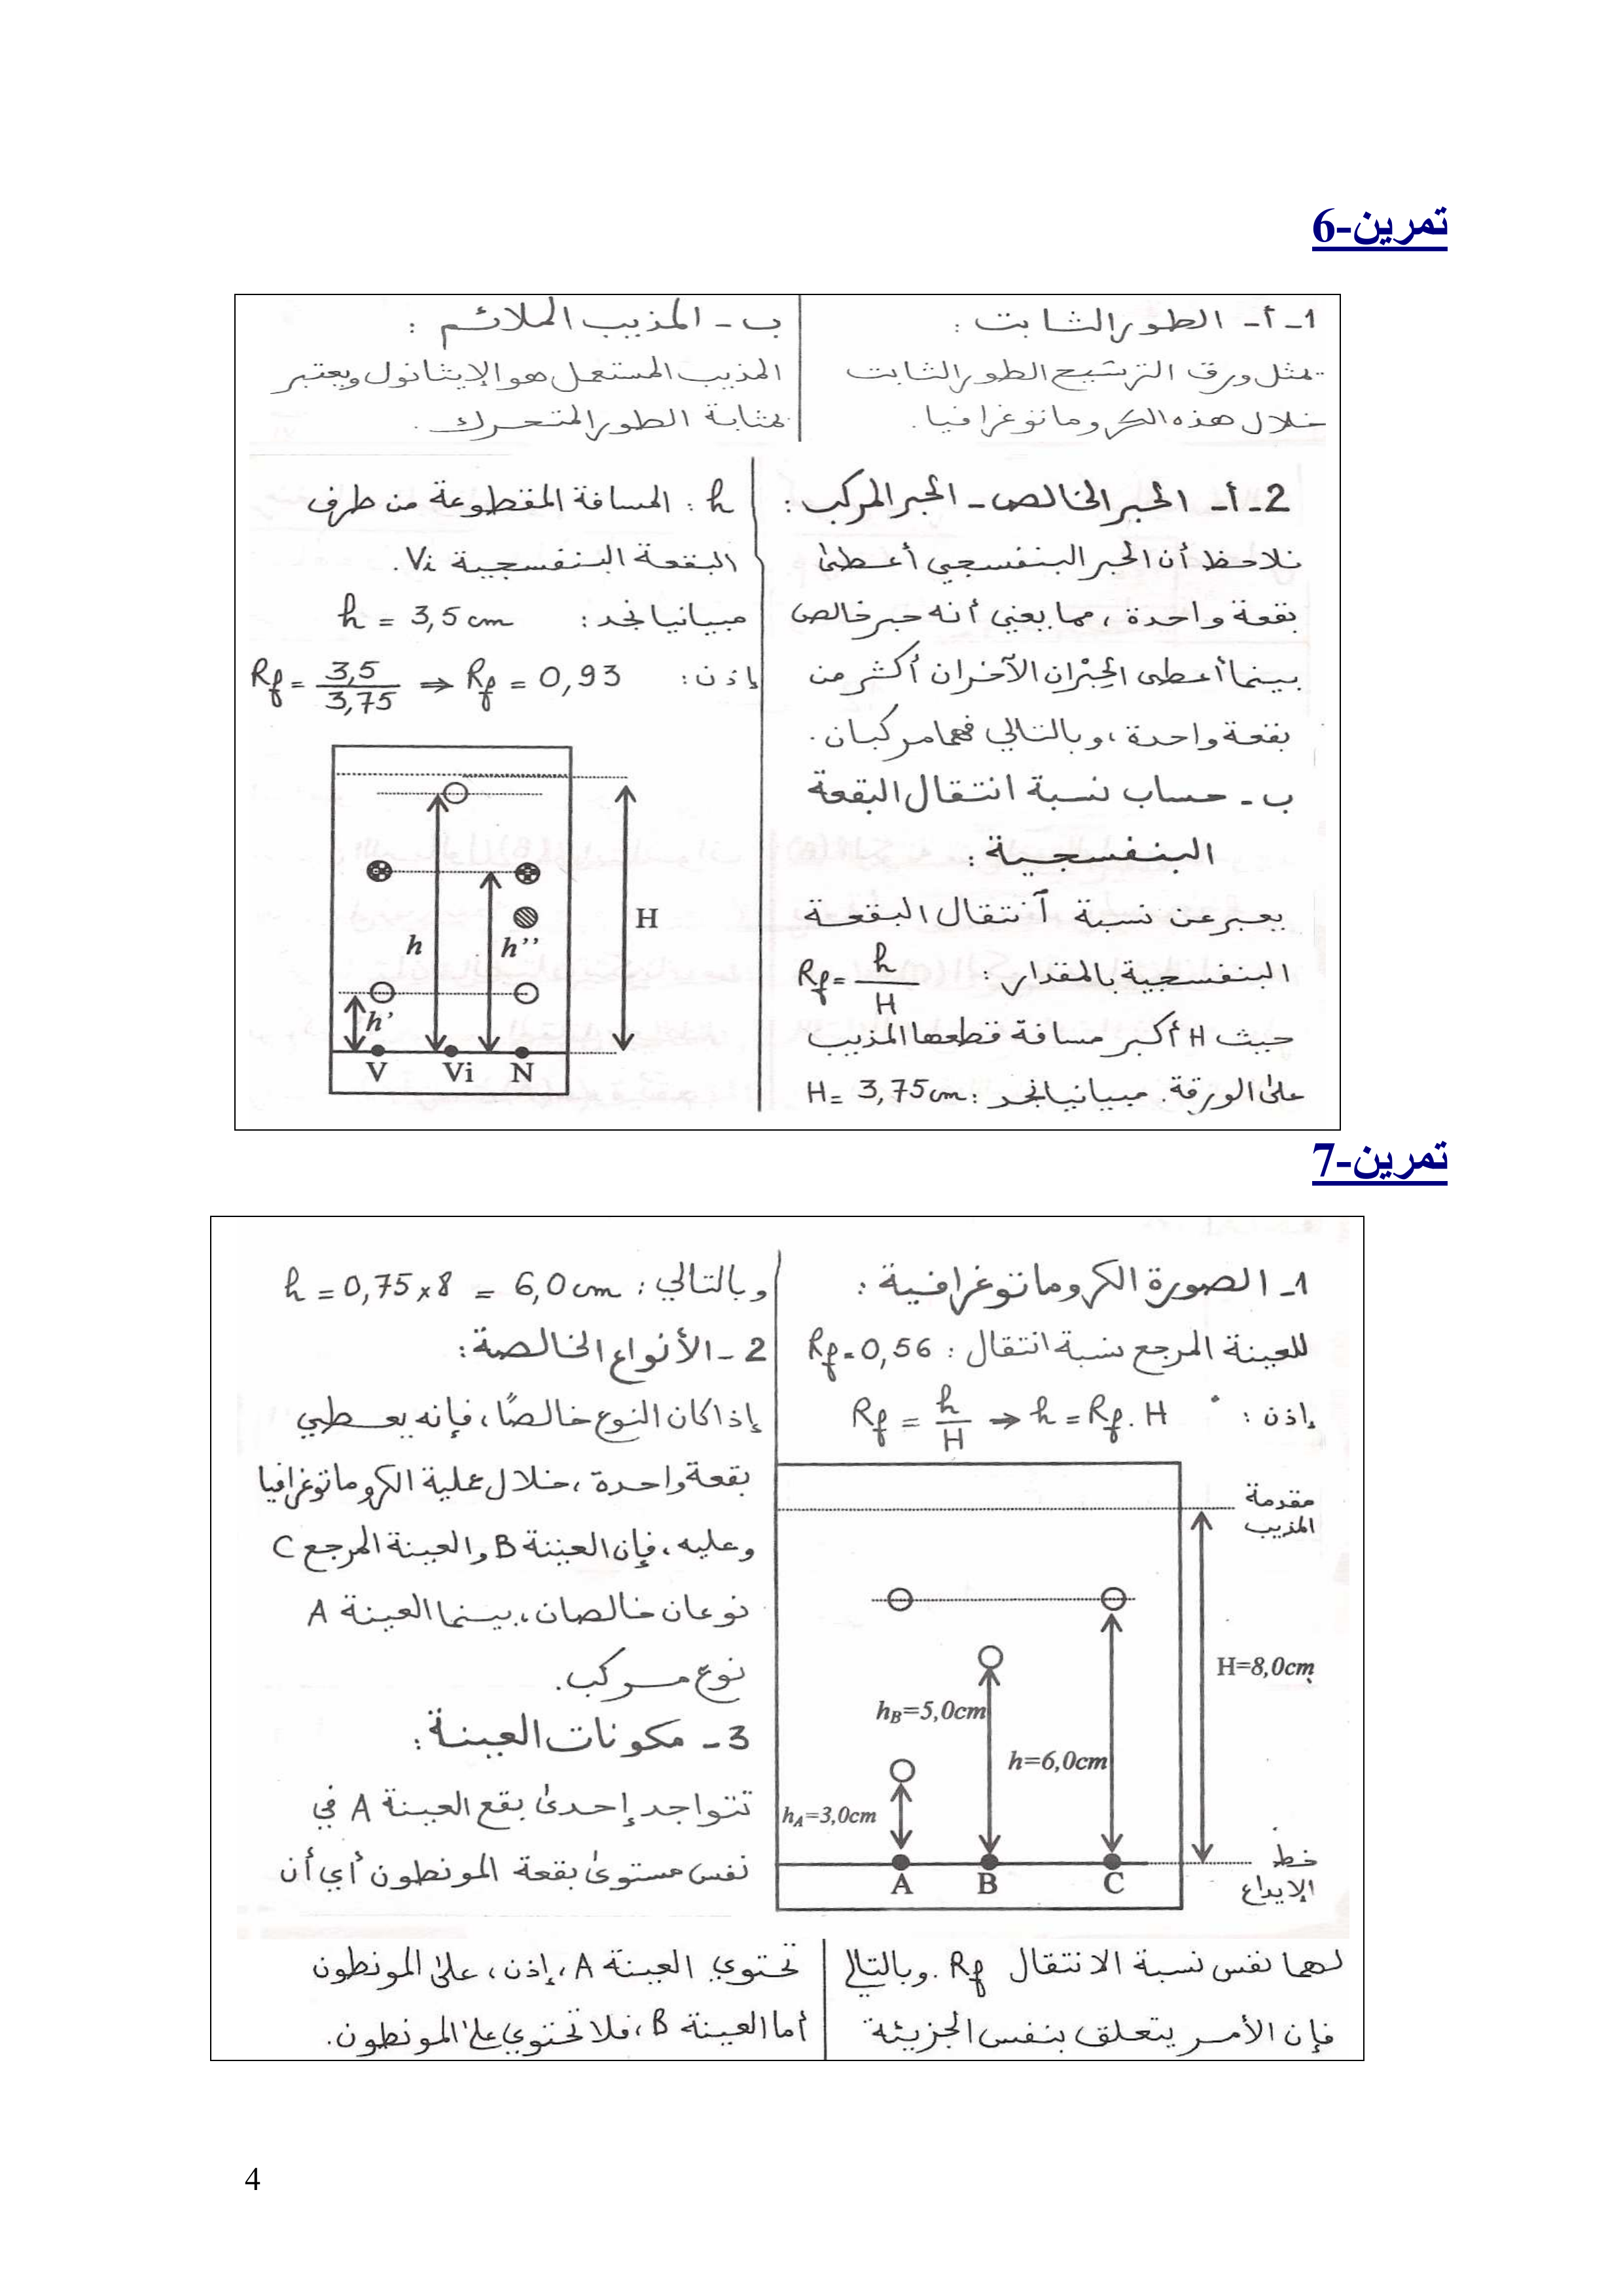 تمرين-6
1-أ- الطور الثابت :
تمثل ورق الترشيح الطور الثابت
خلال هذه الكروماتوغرافيا.
ب- المذيب الملائم :
المذيب المستعمل هو الإيثانول ويعتبر
بمثابة الطور المتحرك.
2-أ- الحبر الخالص - الحبر المركب :
نلاحظ أن الحبر البنفسجي أعطى
بقعة واحدة ، مما يعني أنه حبر خالص
بينما أعطى الحِبْران الآخران أكثر من
بقعة واحدة ، وبالتالي فهما مركبان.
ب- حساب نسبة انتقال البقعة
البنفسجية :
يعبر عن نسبة آنتقال البقعة
البنفسجية بالمقدار : Rf = h/H
حيث H أكبر مسافة قطعها المذيب
على الورقة. مبيانيا نجد : H = 3,75 cm
h : المسافة المقطوعة من طرف
البقعة البنفسجية Vi.
مبيانيا نجد : h = 3,5 cm
إذن : Rf = 3,5/3,75 ⇒ Rf = 0,93
H
h
h''
h'
V Vi N
تمرين-7
1- الصورة الكروماتوغرافية :
للعينة المرجع نسبة انتقال : Rf = 0,56
إذن : Rf = h/H ⇒ h = Rf . H
مقدمة
المذيب
H=8,0cm
hB=5,0cm
h=6,0cm
hA=3,0cm
خط
الإيداع
A B C
وبالتالي : h = 0,75 x 8 = 6,0 cm
2- الأنواع الخالصة :
إذا كان النوع خالصًا ، فإنه يعطي
بقعة واحدة ، خلال عملية الكروماتوغرافيا
وعليه ، فإن العينة B والعينة المرجع C
نوعان خالصان ، بينما العينة A
نوع مركب.
3- مكونات العينة :
تتواجد إحدى بقع العينة A في
نفس مستوى بقعة المونطون أي أن
لهما نفس نسبة الانتقال Rf. وبالتالي
فإن الأمر يتعلق بنفس الجزيئة
تحتوي العينة A ، إذن ، على المونطون
أما العينة B ، فلا تحتوي على المونطون.
4